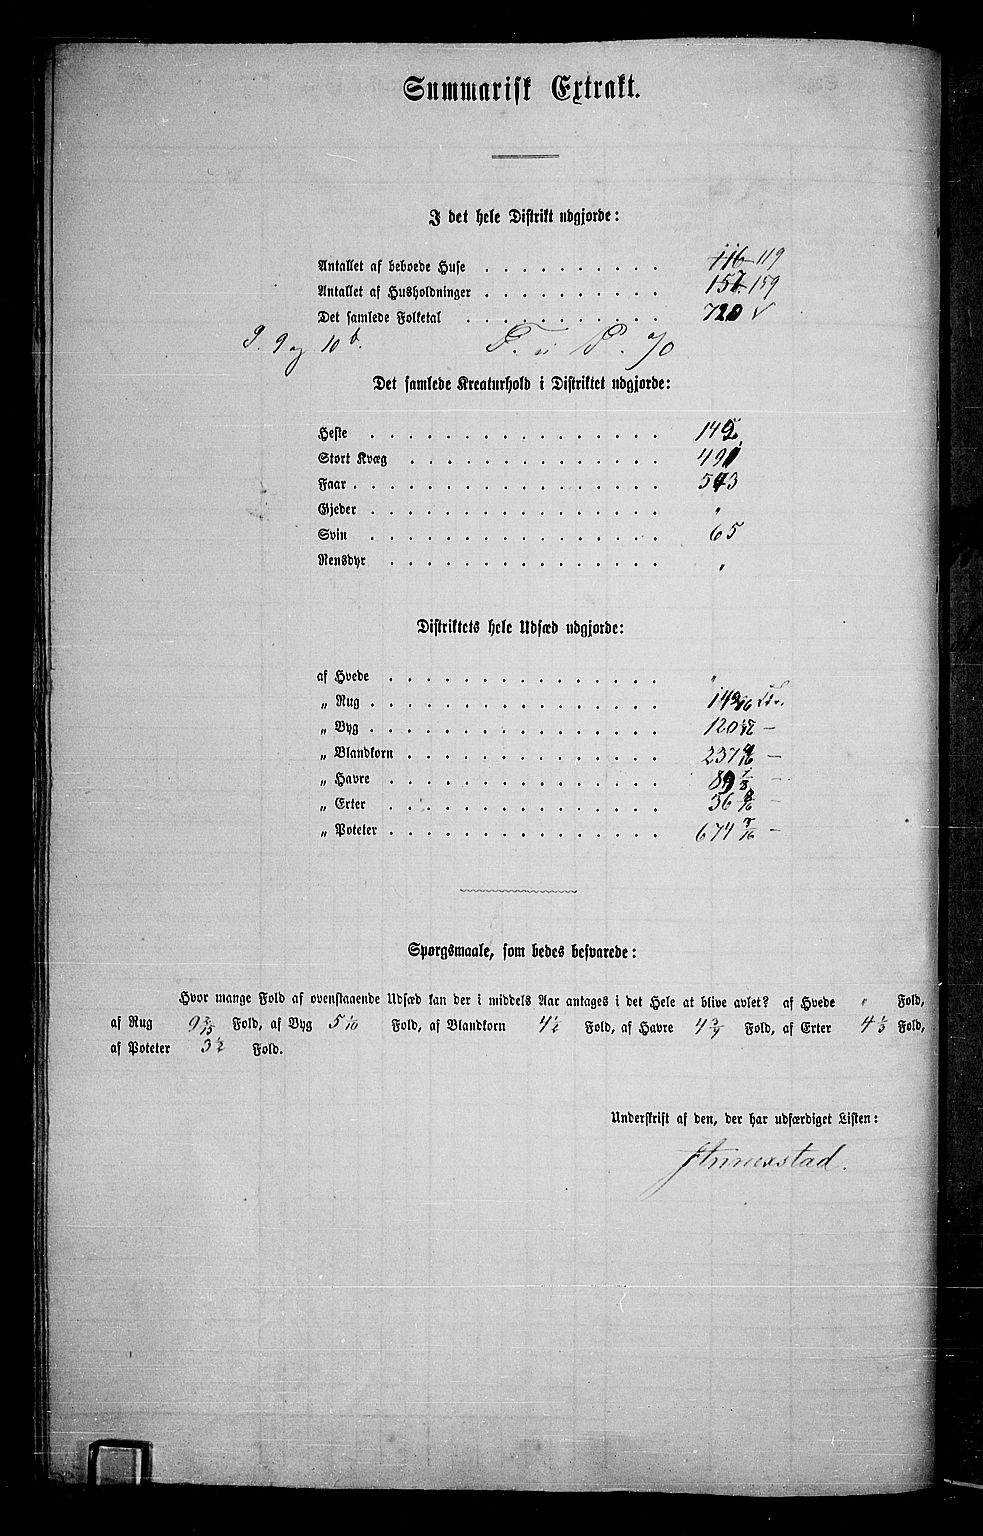 Summarisk Extrakt.
I det hele Distrikt udgjorde:
Antallet af beboede Huse . . . . . . . . . 116 119
Antallet af Husholdninger . . . . . . . . . 157 159
Det samlede Folketal . . . . . . . . . . 720 √
P. 9 og 10 b. F. P. 70
Det samlede Kreaturhold i Distriktet udgjorde:
Heste . . . . . . . . . . . . . . 
Stort Kvæg . . . . . . . . . . . . 491
Faar . . . . . . . . . . . . . . . 543
Gjeder . . . . . . . . . . . . . . "
Svin . . . . . . . . . . . . . . 65
Rensdyr . . . . . . . . . . . . . "
Distriktets hele Udsæd udgjorde:
af Hvede . . . . . . . . . . . . . "
„ Rug . . . . . . . . . . . . . . Tdr.
„ Byg . . . . . . . . . . . . . . 120 —
„ Blandkorn . . . . . . . . . . . . 237 —
„ Havre . . . . . . . . . . . . . 89 7/8 —
„ Erter . . . . . . . . . . . . . 36 —
„ Poteter . . . . . . . . . . . . . 674 7/16 —
Spørgsmaale, som bedes besvarede:
Hvor mange Fold af ovenstaaende Udsæd kan der i middels Aar antages i det Hele at blive avlet? af Hvede " Fold,
af Rug 9 Fold, af Byg 5 1/10 Fold, af Blandkorn 4 1/2 Fold, af Havre 4 Fold, af Erter 4 1/3 Fold,
af Poteter 3 1/2 Fold.
Underskrift af den, der har udfærdiget Listen: